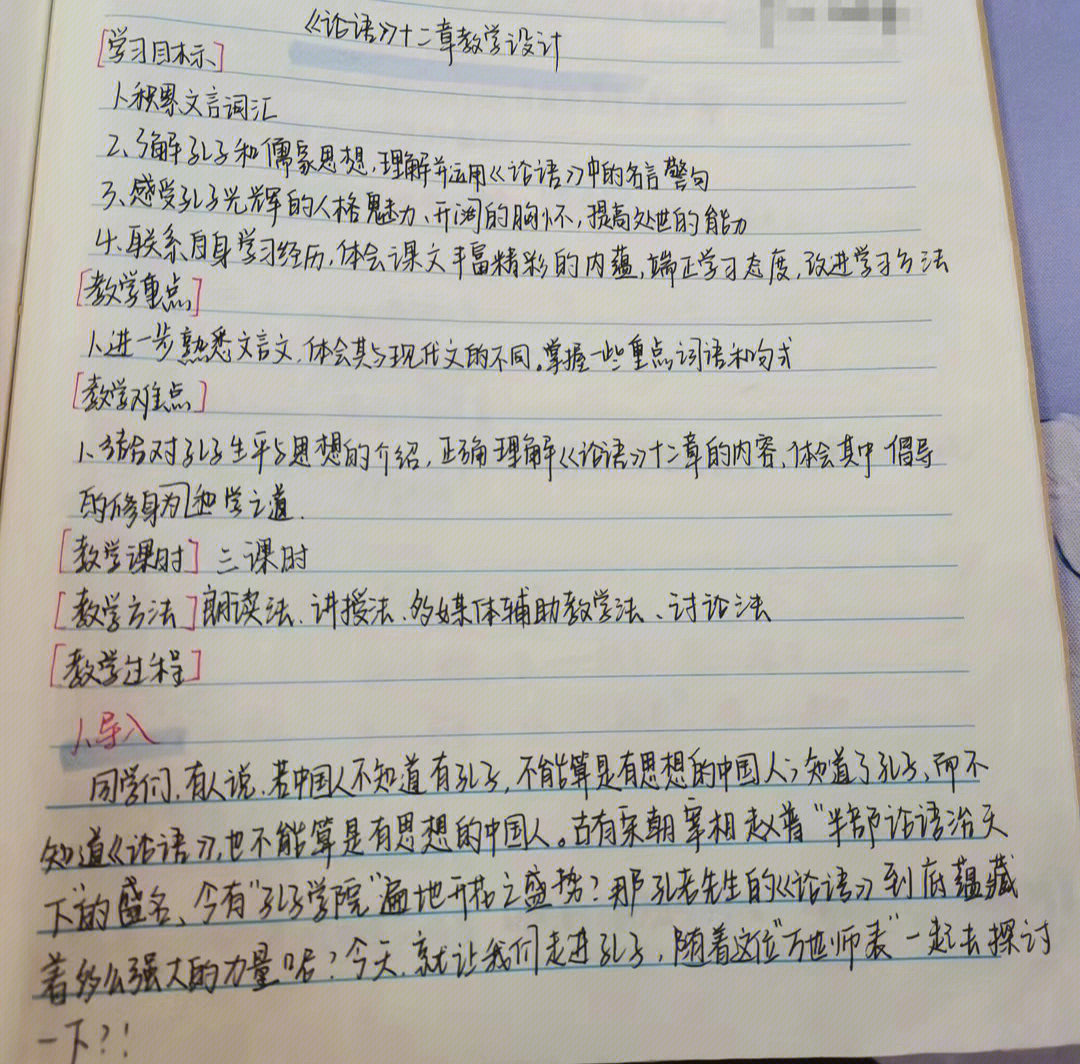 《论语》十二章教学设计
[学习目标]
1、积累文言词汇
2、了解孔子和儒家思想，理解并运用《论语》中的名言警句
3、感受孔子光辉的人格魅力、开阔的胸怀，提高处世的能力
4、联系自身学习经历，体会课文丰富精彩的内蕴，端正学习态度，改进学习方法
[教学重点]
1、进一步熟悉文言文，体会其与现代文的不同。掌握一些重点词语和句式
[教学难点]
1、结合对孔子生平与思想的介绍，正确理解《论语》十二章的内容、体会其中倡导
的修身为和学之道.
[教学课时] 三课时
[教学方法] 朗读法、讲授法、多媒体辅助教学法、讨论法
[教学过程]
1、导入
同学们，有人说，若中国人不知道有孔子，不能算是有思想的中国人；知道了孔子，而不
知道《论语》，也不能算是有思想的中国人。古有宋朝宰相赵普“半部论语治天
下”的盛名、今有“孔子学院”遍地开花之盛势？那孔老先生的《论语》到底蕴藏
着多么强大的力量呢？今天，就让我们走进孔子，随着这位“万世师表”一起去探讨
一下？！